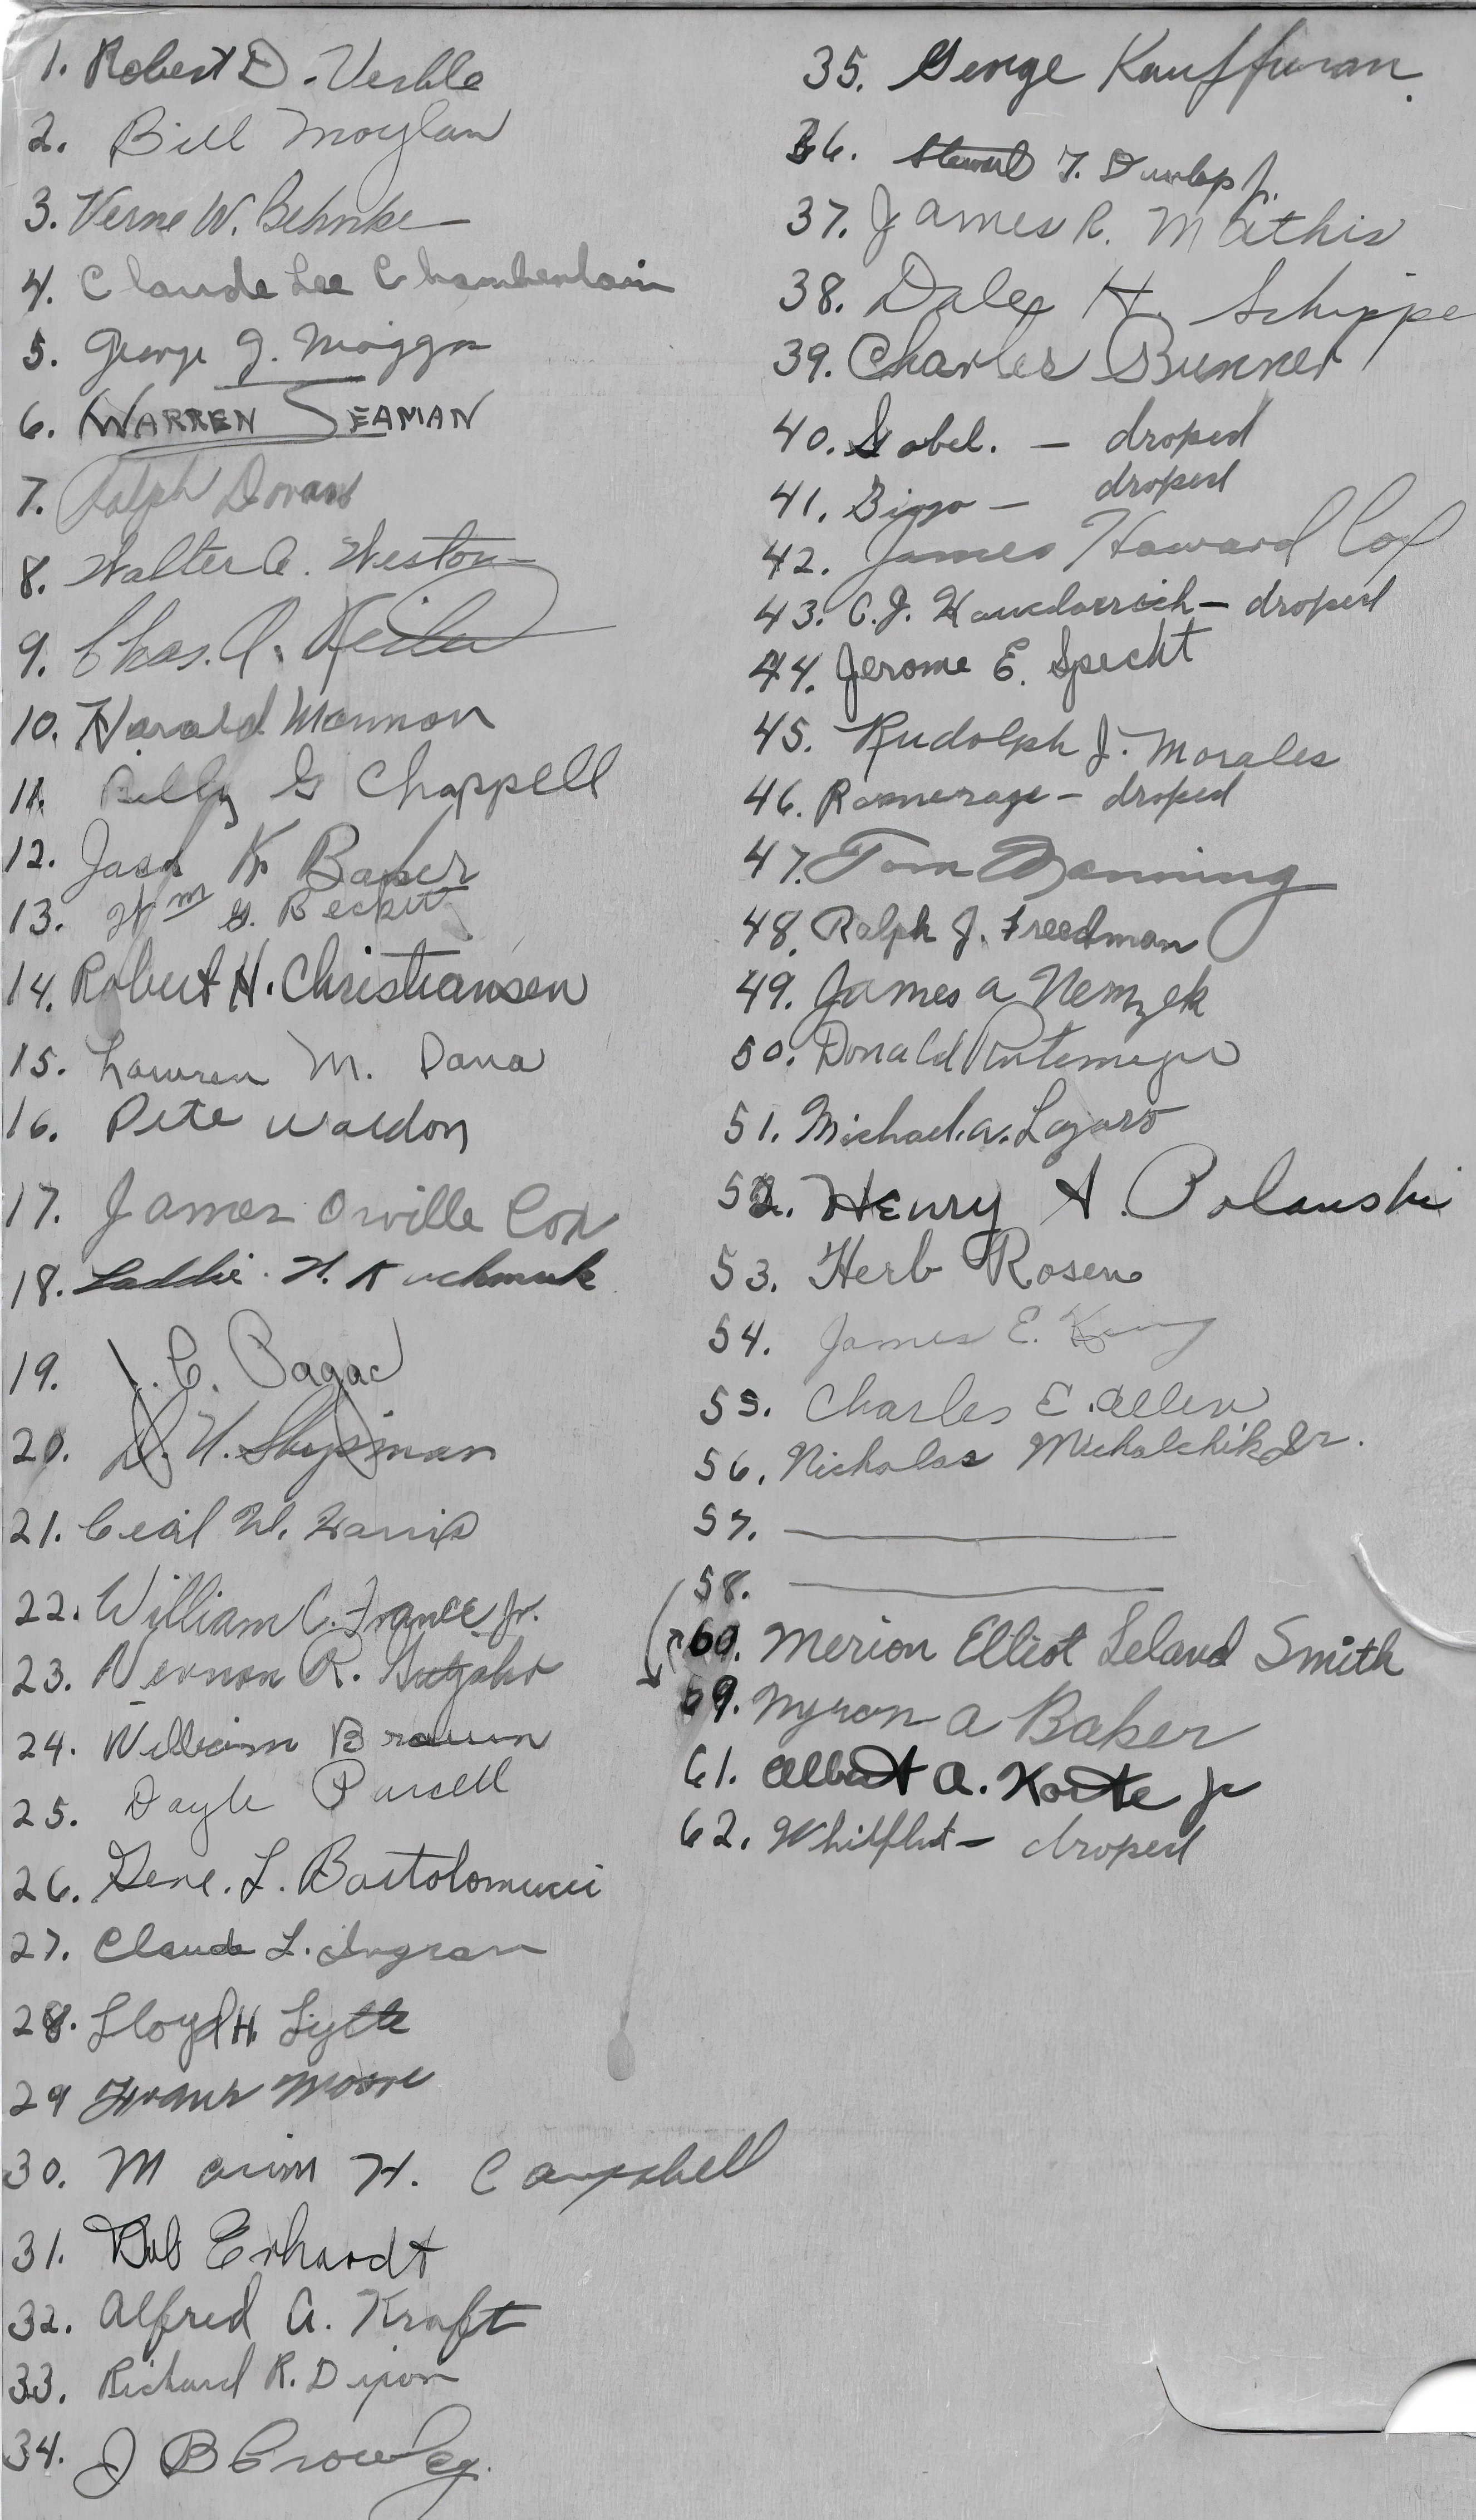 1. Robert D. Verble
2. Bill Moylan
3. Verne W. Behnke
4. Claude Lee Chamberlain
5. George J.
6. WARREN SEAMAN
7. Ralph Dorans
8. Walter C. Weston
9. Chas. A.
10. Harold Mannon
11. Billy G Chappell
12. Jack K. Baker
13. Wm G. Beckett
14. Robert H. Christiansen
15. M. Dana
16. Pete Waldon
17. James Orville Cox
18. Laddie H. Kuchmuk
19. J. C. Pagac
20. D. H. Shipman
21. Cecil W. Harris
22. William C. France Jr.
23. Vernon R.
24. William Braun
25. Dayle Purcell
26. Gene. L. Bartolomucci
27. Claude L. Ingram
28. Lloyd H. Lytle
29 Moore
30. H. Campbell
31. Bob Erhardt
32. Alfred A. Kraft
33. Richard R. Dixon
34. J B Crowley.
35. George Kauffman.
36. Stewart T. Dunlap Jr.
37. James R. Mathis
38. Dale H. Schippe
39. Charles Bunner
40. Gobel. — droped
41. Bingo — droped
42. James Howard Cox
43. C. J. — droped
44. Jerome E. Specht
45. Rudolph J. Morales
46. — droped
47. Tom Manning
48. Ralph J. Freedman
49. James A Nemzek
50. Donald Rutemeyer
51. Michael. A. Lazaro
52. Henry A. Polanski
53. Herb Rosen
54. James E. King
55. Charles E. Allen
56. Nicholas Michalchik Jr.
57.
58.
60. Merion Elliot Leland Smith
59. Myron A Baker
61. Albert A. Korte Jr
62. — droped